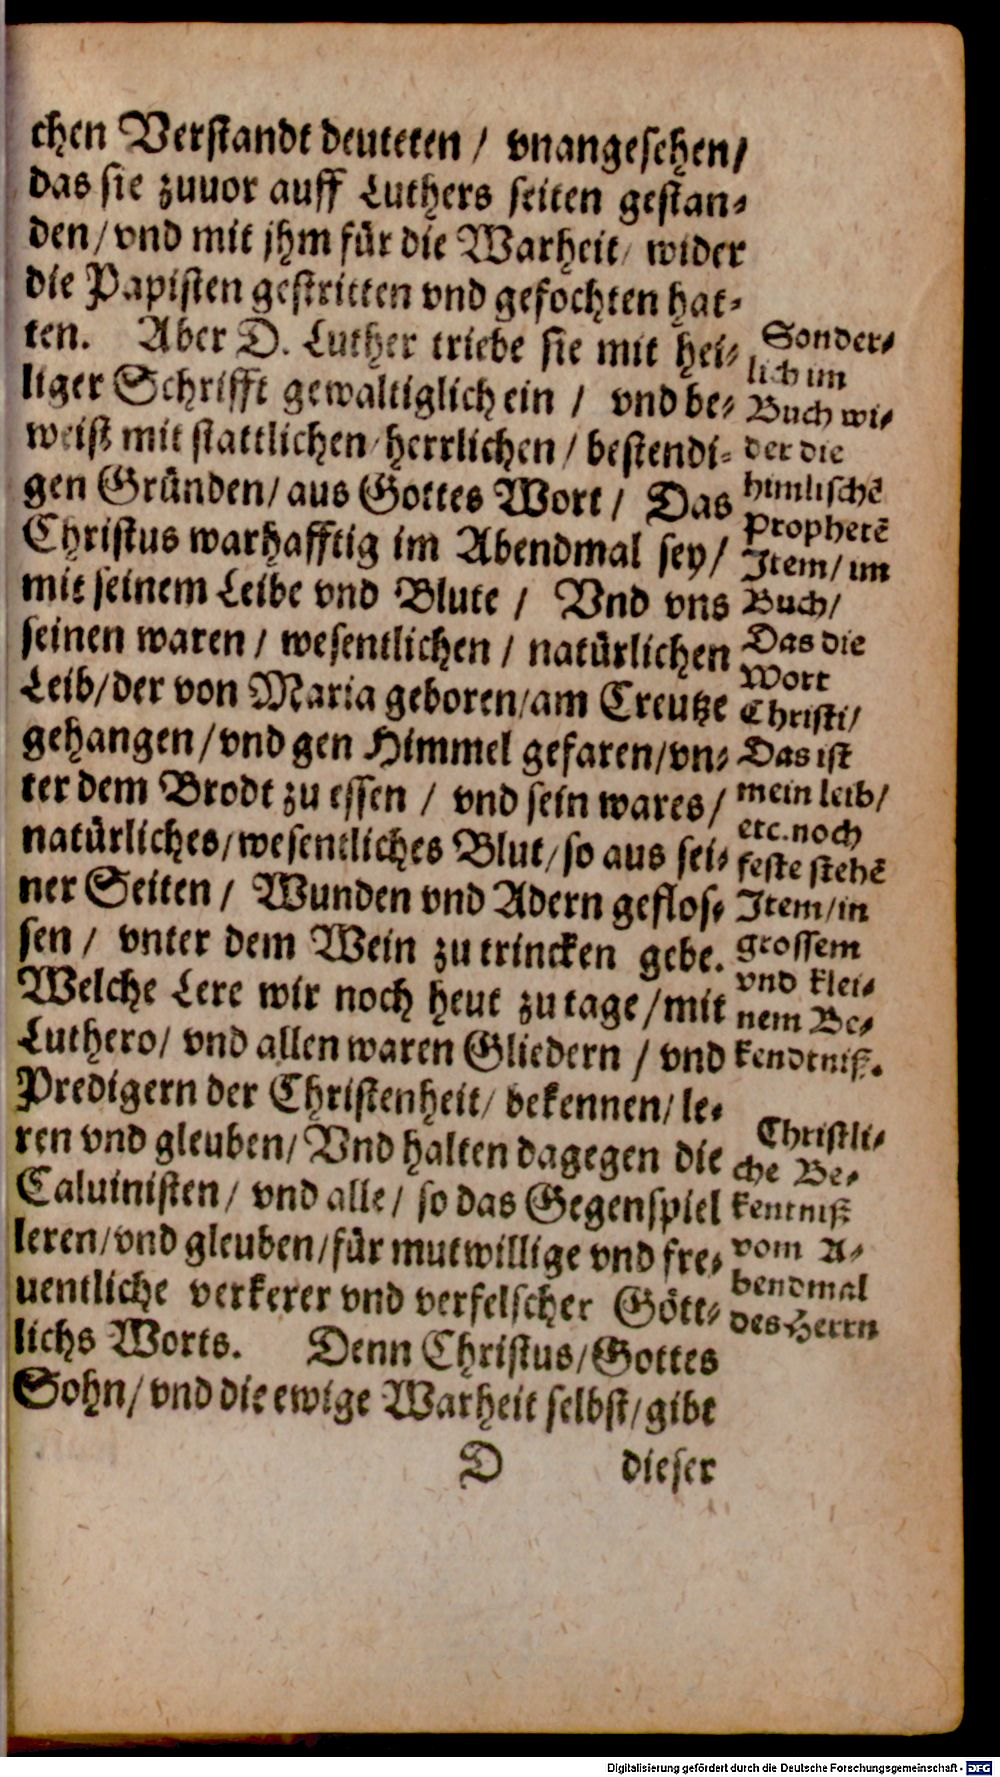 chen Verstandt deuteten / vnangesehen /
das sie zuuor auff Luthers seiten gestan⸗
den / vnd mit jhm für die Warheit / wider
die Papisten gestritten vnd gefochten hat⸗
ten. Aber D. Luther triebe sie mit hei⸗
liger Schrifft gewaltiglich ein / vnd be⸗
weist mit stattlichen / herrlichen / bestendi⸗
gen Gründen / aus Gottes Wort / Das
Christus warhafftig im Abendmal sey /
mit seinem Leibe vnd Blute / Vnd vns
seinen waren / wesentlichen / natürlichen
Leib / der von Maria geboren / am Creutze
gehangen / vnd gen Himmel gefaren / vn⸗
ter dem Brodt zu essen / vnd sein wares /
natürliches / wesentliches Blut / so aus sei⸗
ner Seiten / Wunden vnd Adern geflos⸗
sen / vnter dem Wein zu trincken gebe.
Welche Lere wir noch heut zu tage / mit
Luthero / vnd allen waren Gliedern / vnd
Predigern der Christenheit / bekennen / le⸗
ren vnd gleuben / Vnd halten dagegen die
Caluinisten / vnd alle / so das Gegenspiel
leren / vnd gleuben / für mutwillige vnd fre⸗
uentliche verkerer vnd verfelscher Gött⸗
lichs Worts. Denn Christus / Gottes
Sohn / vnd die ewige Warheit selbst / gibt
D dieser
Sonder⸗
lich im
Buch wi⸗
der die
himlischē
Prophetē
Item / im
Buch /
Das die
Wort
Christi /
Das ist
mein leib /
etc. noch
feste stehē
Item / in
grossem
vnd klei⸗
nem Be⸗
kendtniß.
Christli⸗
che Be⸗
kentniß
vom A⸗
bendmal
des Herrn
Digitalisierung gefördert durch die Deutsche Forschungsgemeinschaft - DFG